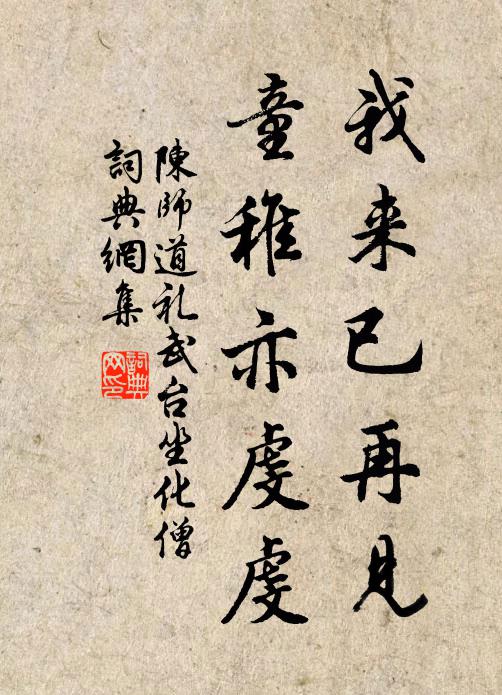 我来已再見
童稚亦虔虔
陳師道礼武台坐化僧
詞典網集
詞典網印